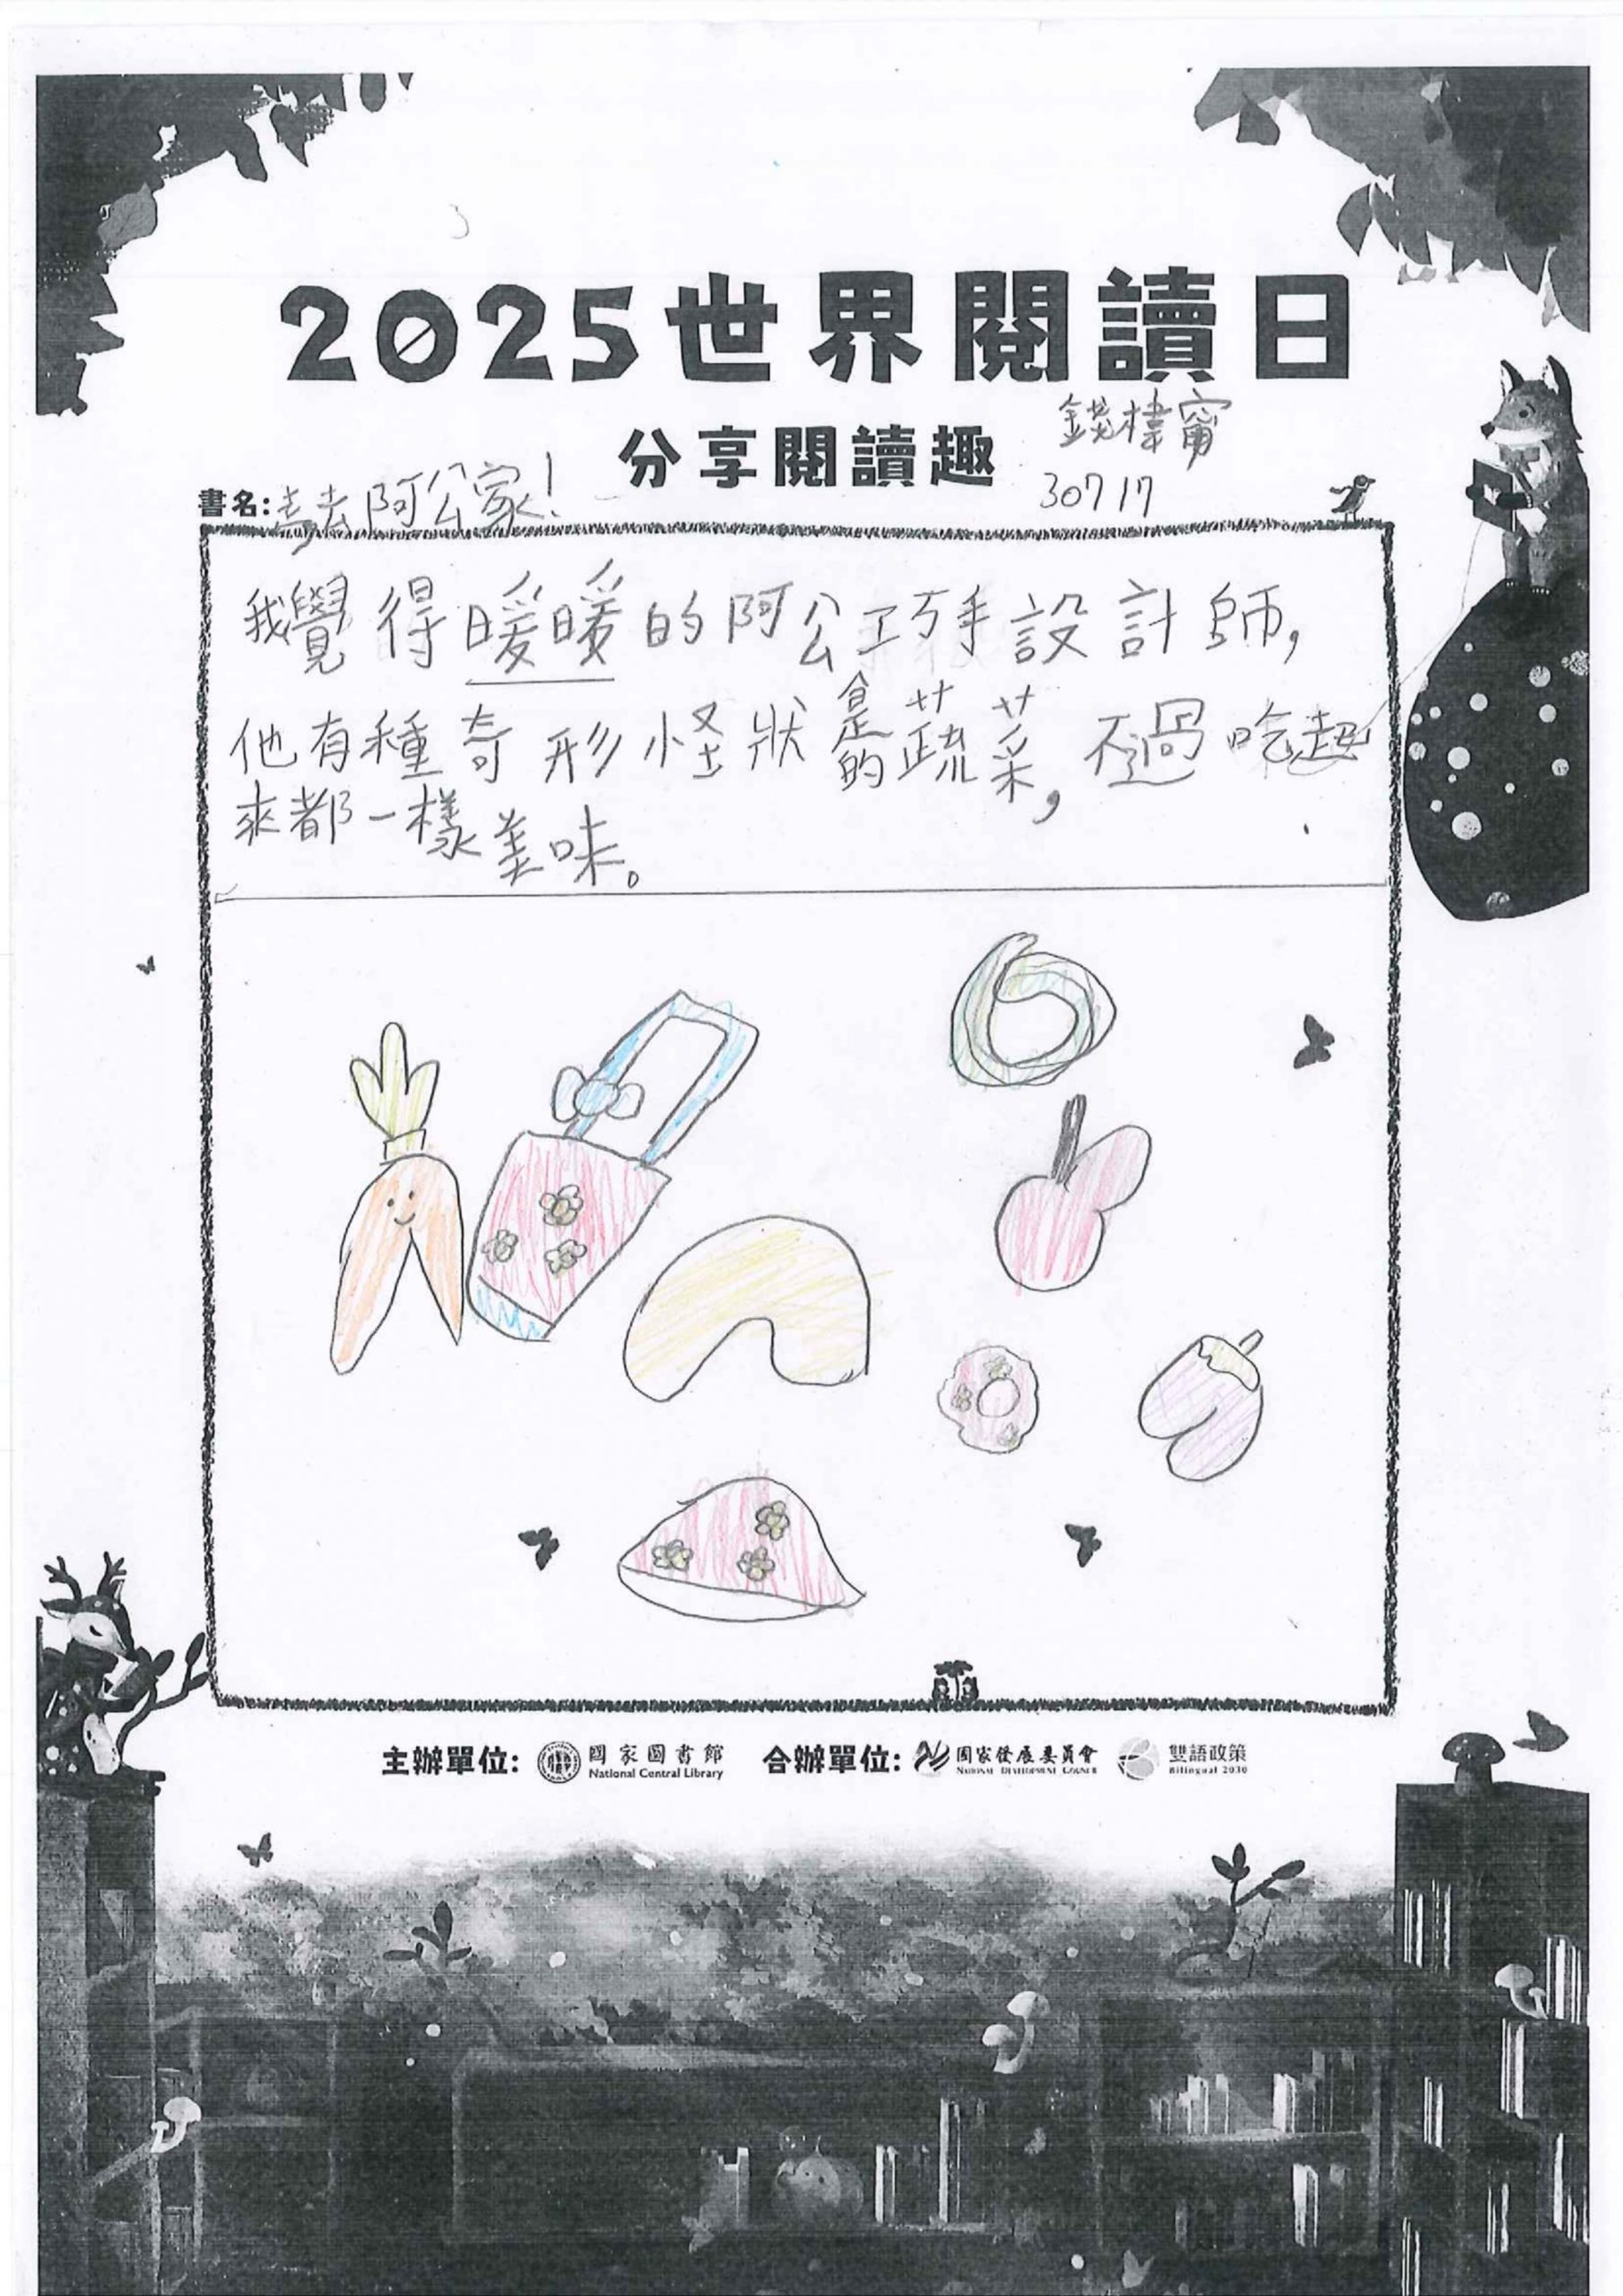 2025世界閱讀日
分享閱讀趣
錢樟甯
30717
書名:去阿公家!
我覺得暖暖的阿公巧手設計師,
他有種奇形怪狀的蔬菜,不過吃起
來都一樣美味。
主辦單位: 國家圖書館 合辦單位: 國家發展委員會 雙語政策
National Central Library NATIONAL DEVELOPMENT COUNCIL Bilingual 2030